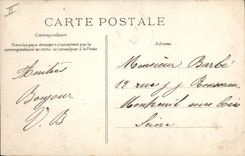 II
CARTE POSTALE
Correspondance
Tous les pays étrangers n'acceptent pas la
correspondance au recto se renseigner à la Poste
Adresse
Amitiés
Bonjour
J. B
Monsieur Barbé
19 rue J J Rousseau
Montreuil sous Bois
Seine